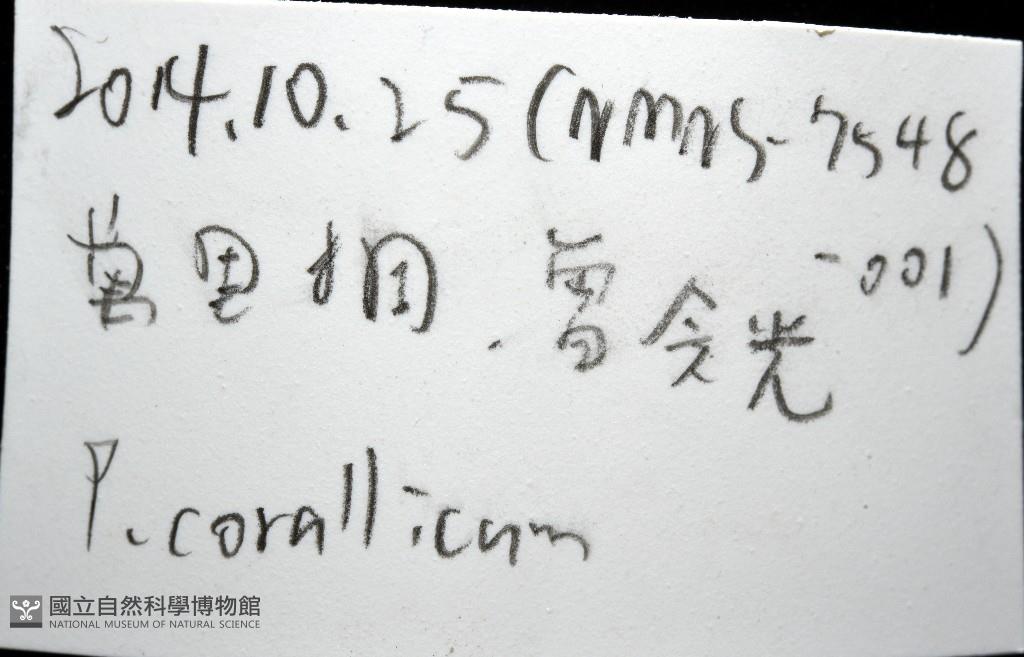 2014.10.25 (NMNS-7548
-001)
萬里桐. 曾令光
P. corallicum
國立自然科學博物館
NATIONAL MUSEUM OF NATURAL SCIENCE